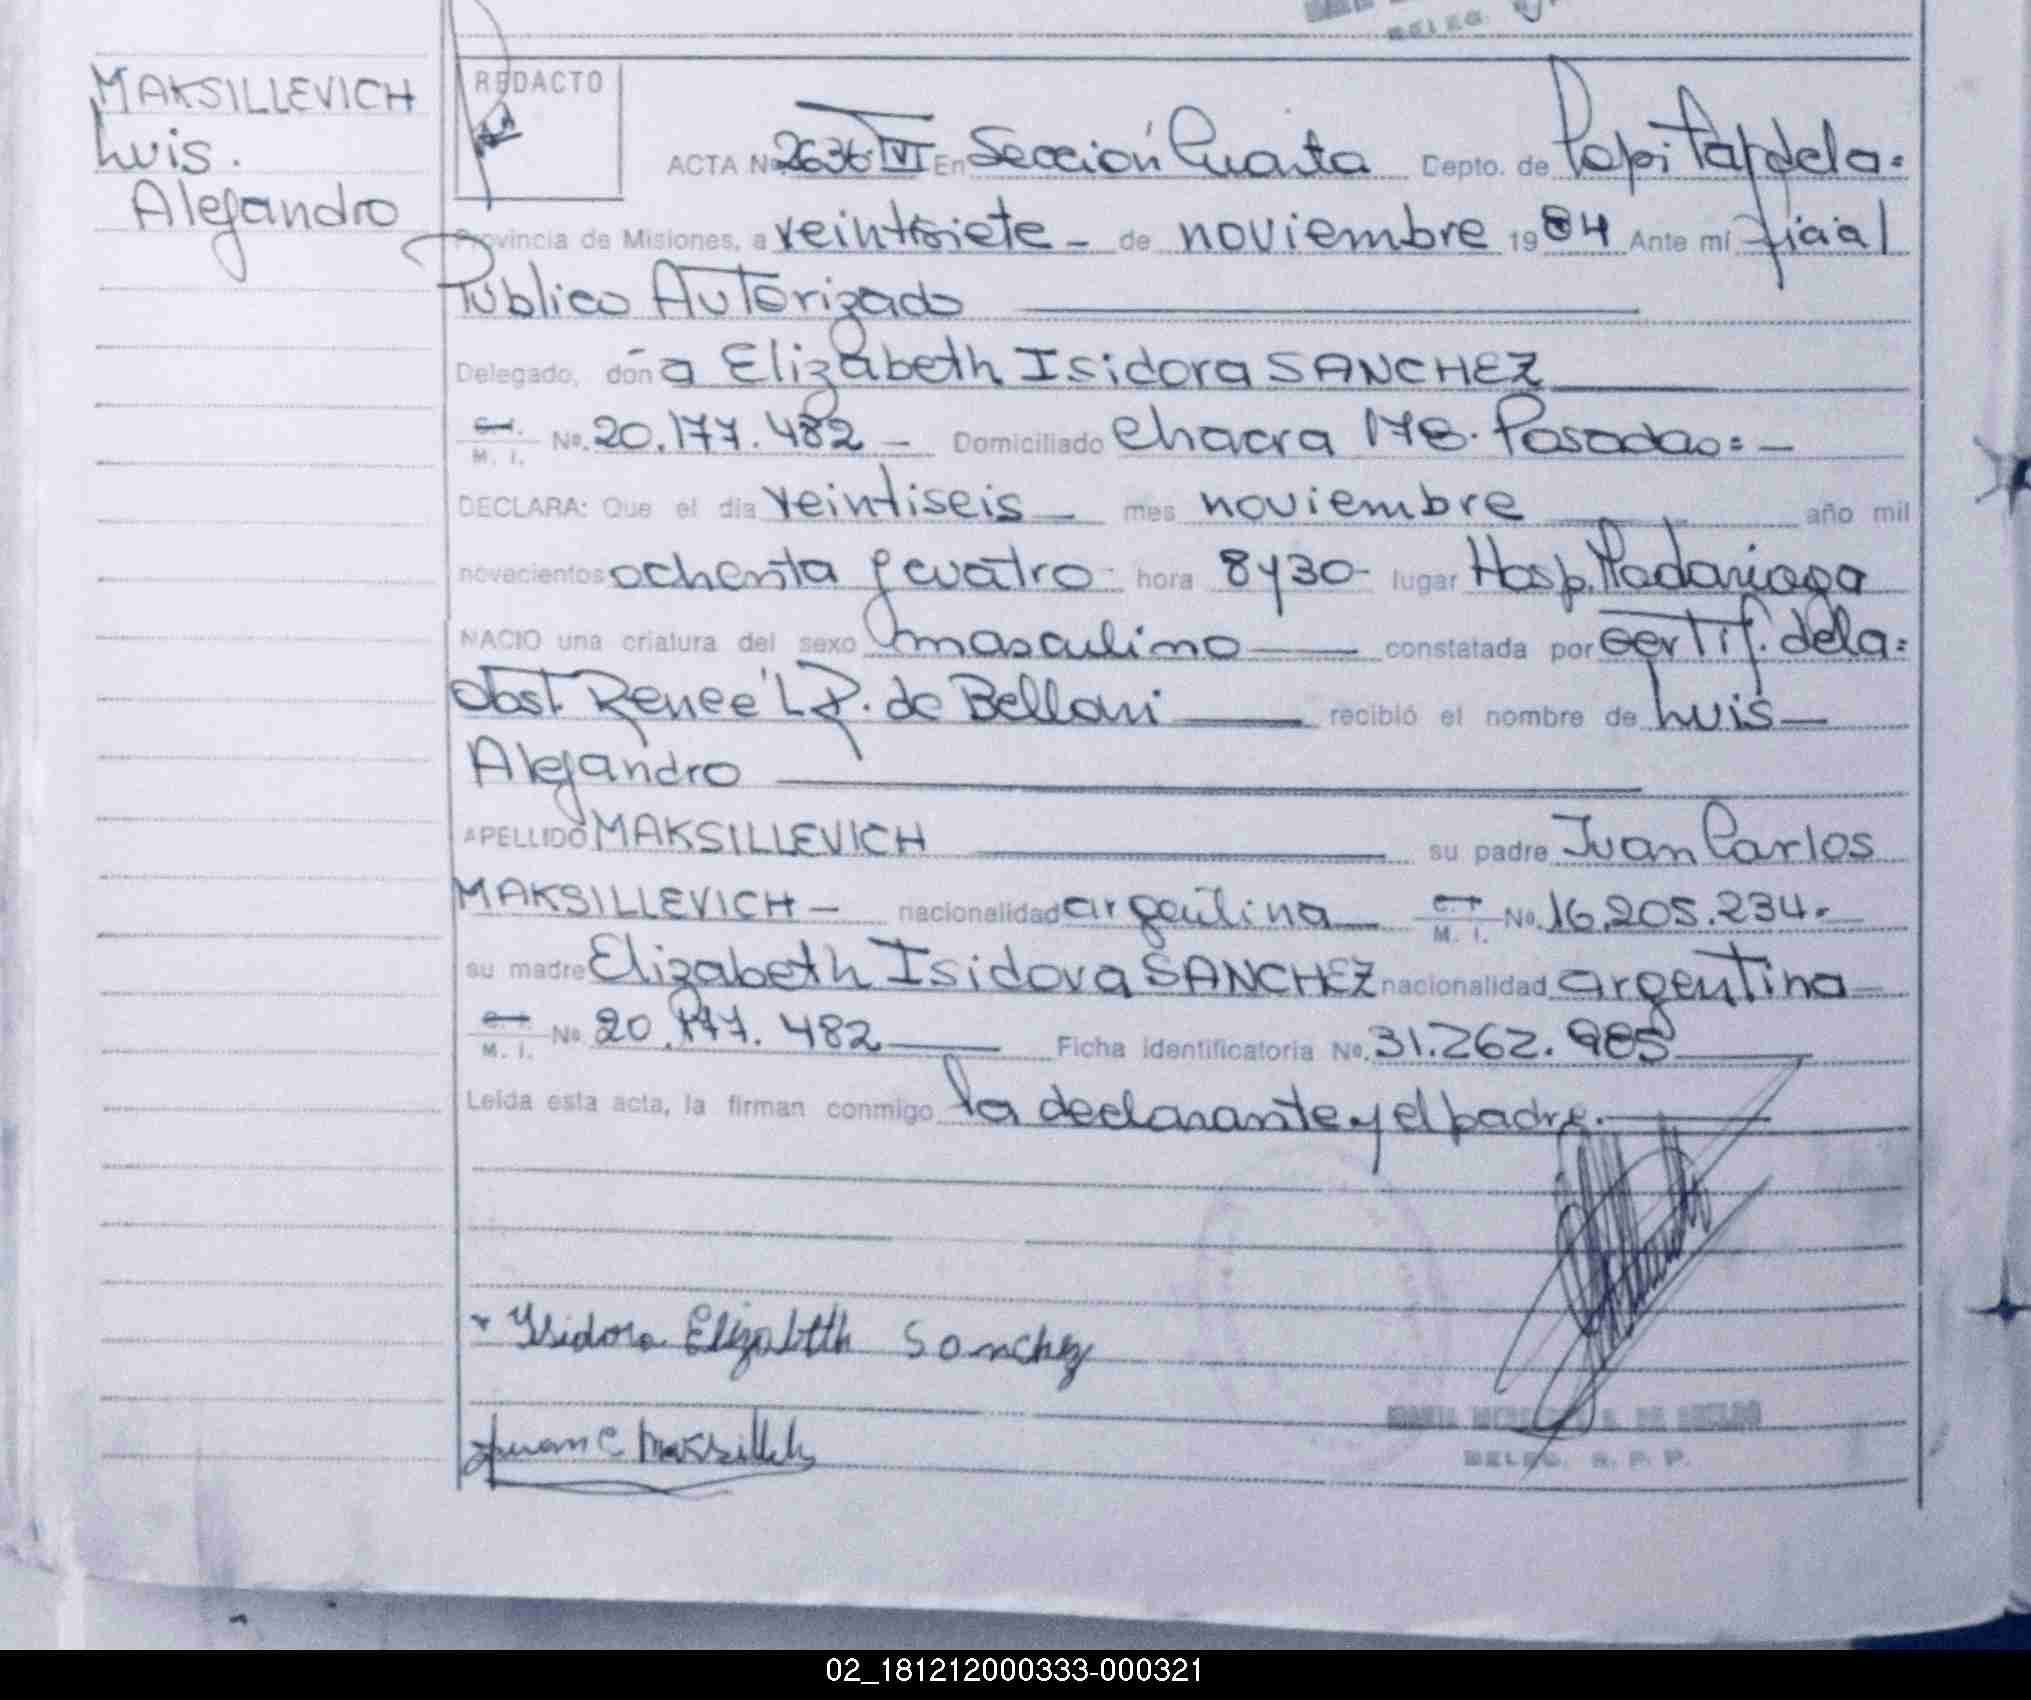 DELEG.
MAKSILLEVICH
Luis.
Alejandro
REDACTO
ACTA Nº 2636 T VI En Sección Cuarta Depto. de Capital de la=
Provincia de Misiones, a veintisiete - de noviembre 1984 Ante mí Oficial
Público Autorizado
Delegado, doña Elizabeth Isidora SANCHEZ
M. I. Nº. 20.177.482 - Domiciliado Chacra 178. Posadas=-
DECLARA: Que el día veintiseis - mes noviembre año mil
novecientos ochenta y cuatro - hora 8y30- lugar Hosp. Madariaga
NACIO una criatura del sexo masculino constatada por certif. de la=
obst. Renee L R. de Belloni recibió el nombre de Luis -
Alejandro
APELLIDO MAKSILLEVICH su padre Juan Carlos
MAKSILLEVICH - nacionalidad argentina M. I. Nº. 16.205.234.-
su madre Elizabeth Isidora SANCHEZ nacionalidad argentina
M. I. Nº 20.177.482 Ficha identificatoria Nº. 31.262.985
Leída esta acta, la firman conmigo la declarante y el padre.
Isidora Elizabeth Sanchez
Juan C Maksillch
MARIA DE
DELEG. R. P. P.
02_181212000333-000321